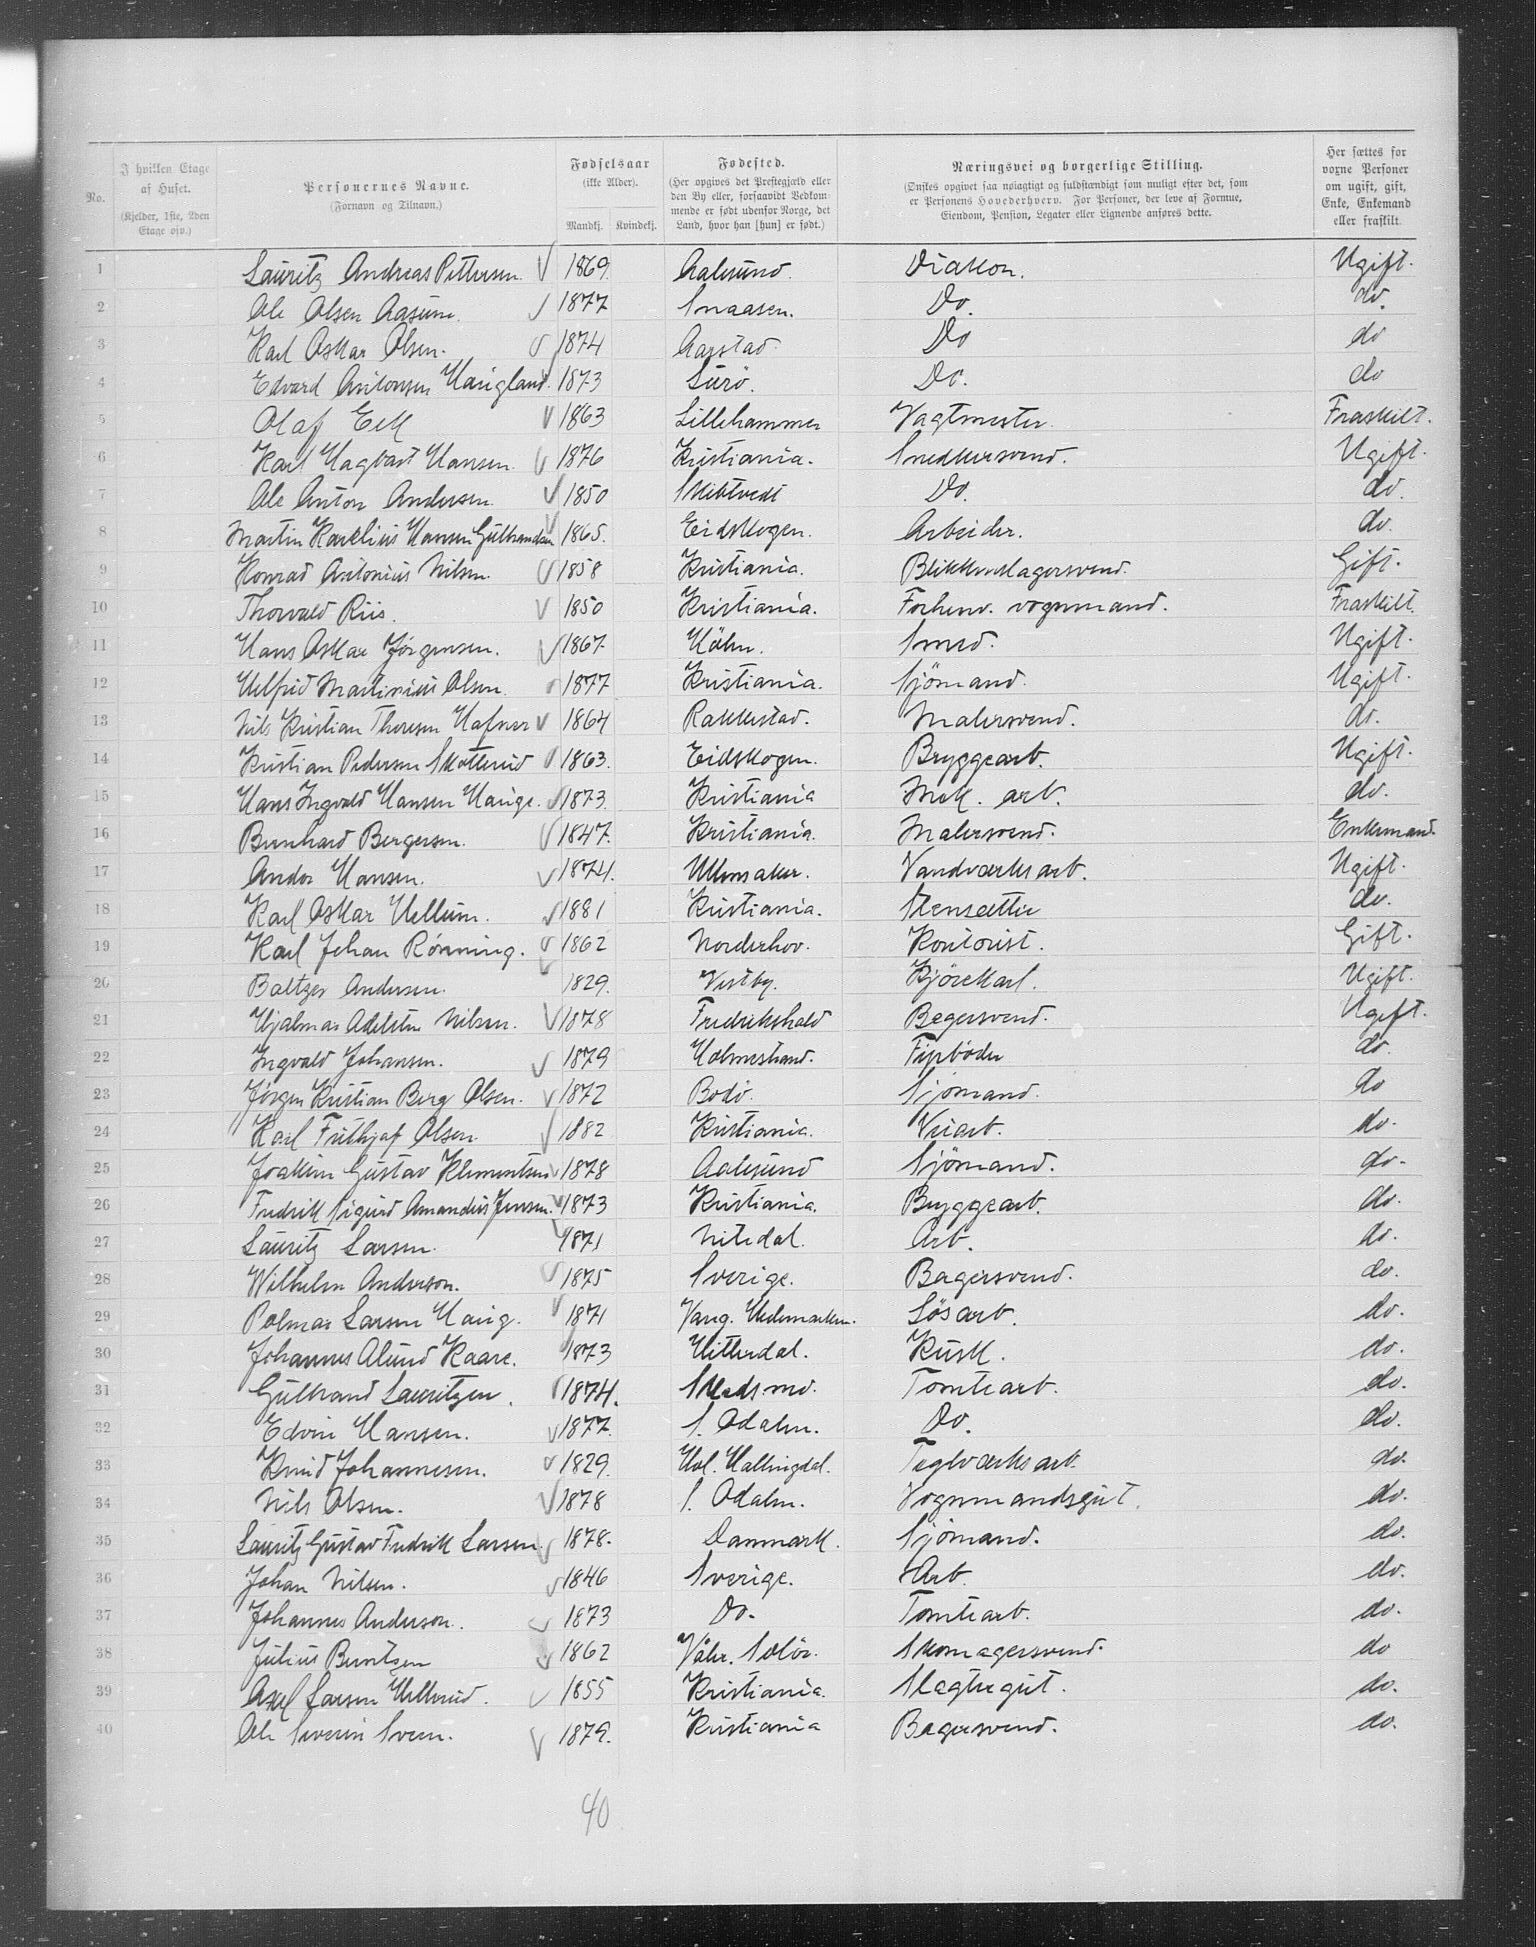 No.
I hvilken Etage af Huset. (Kjelder, 1ste, 2den Etage osv.)
Personernes Navne. (Fornavn og Tilnavn.)
Fødselsaar (ikke Alder). Mandkj. Kvindekj.
Fødested. (Her opgives det Prestegjæld eller den By eller, forsaavidt Vedkommende er født udenfor Norge, det Land, hvor han [hun] er født.)
Næringsvei og borgerlige Stilling. (Ønskes opgivet saa nøiagtigt og fuldstændigt som muligt efter det, som er Personens Hovederhverv. For Personer, der leve af Formue, Eiendom, Pension, Legater eller Lignende anføres dette.)
Her sættes for voxne Personer om ugift, gift, Enke, Enkemand eller fraskilt.
1 Lauritz Andreas Pettersen 1869. Aalesund. Diakon. Ugift.
2 Ole Olsen Aasum. 1877 Snaasen. Do. do.
3 Karl Oskar Olsen. 1874 Aarstad. Do do
4 Edvard Antonsen Haugland. 1873 Surö. Do. do
5 Olaf Eek 1863 Lillehammer Vagtmester Fraskilt.
6 Karl Hagbart Hansen. 1876 Kristiania. Snedkersvend. Ugift.
7 Ole Anton Andersen. 1850 Skibtvedt Do. do.
8 Martin Karelius Hansen Gulbrandsen 1865. Eidskogen. Arbeider. do.
9 Konrad Antonius Nilsen. 1858 Kristiania. Blikkenslagersvend. Gift.
10 Thorvald Riis. 1850 Kristiania. Forhenv. vognmand. Fraskilt.
11 Hans Oskar Jörgensen. 1867 Hölen. Smed. Ugift.
12 Helfrid Martinius Olsen. 1877 Kristiania. Sjömand. Ugift.
13 Nils Kristian Thoresen Hafner 1864 Rakkestad. Malersvend. do.
14 Kristian Pedersen Skotterud 1863. Eidskogen. Bryggearb. Ugift.
15 Hans Ingvald Hansen Hauge. 1873. Kristiania Mek. arb. do.
16 Bernhard Bergersen. 1847. Kristiania. Malersvend. Enkemand.
17 Andor Hansen. 1874. Ullensaker. Vandværksarb. Ugift.
18 Karl Oskar Hellum. 1881 Kristiania. Stensætter do.
19 Karl Johan Rönning. 1862 Norderhov. Kontorist. Gift.
20 Baltzer Andersen. 1829. Vestby. Kjörekarl. Ugift.
21 Hjalmar Adelsten Nilsen. 1878 Fredrikshald Bagersvend. Ugift.
22 Ingvald Johansen. 1879 Holmestrand. Fyrböder do.
23 Jörgen Kristian Berg Olsen. 1872 Bodö. Sjömand. do
24 Karl Frithjof Olsen 1882 Kristiania. Veiarb. do.
25 Joakim Gustav Klementsen 1878 Aalesund Sjömand. do.
26 Fredrik Sigurd Amandus Jensen. 1873 Kristiania. Bryggearb. do.
27 Lauritz Larsen. 1871 Nitedal. Arb. do.
28 Wilhelm Anderson. 1875 Sverige. Bagersvend. do.
29 Palmar Larsen Haug. 1871 Vang. Hedemarken. Lösarb. do.
30 Johannes Alund Kaare. 1873 Hitterdal. Kusk. do.
31 Gulbrand Lauritzen. 1874. Skedsmo. Tomtearb. do.
32 Edvin Hansen. 1877. S. Odalen. Do. do.
33 Knud Johannesen. 1829. Hol. Hallingdal. Teglværksarb. do.
34 Nils Olsen. 1878 S. Odalen. Vognmandsgut. do.
35 Lauritz Gustav Fredrik Larsen. 1878. Danmark. Sjömand. do.
36 Johan Nilsen. 1846 Sverige. Arb. do.
37 Johannes Anderson. 1873 Do. Tomtearb. do.
38 Julius Berntsen 1862 Våler. Solör. Skomagersvend. do
39 Axel Larsen Hellerud. 1855 Kristiania. Slagtergut. do.
40 Ole Severin Sveen. 1879. Kristiania Bagersvend. do.
40